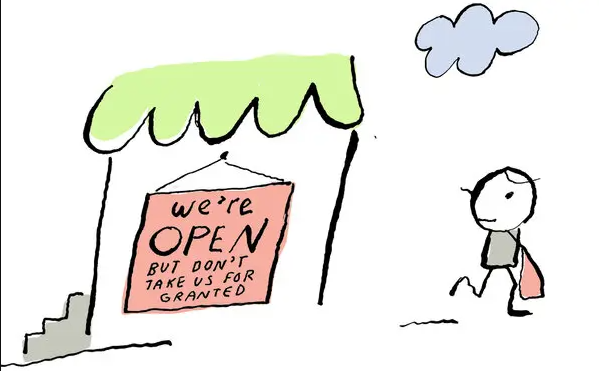 we're
OPEN
BUT DON'T
TAKE US FOR
GRANTED